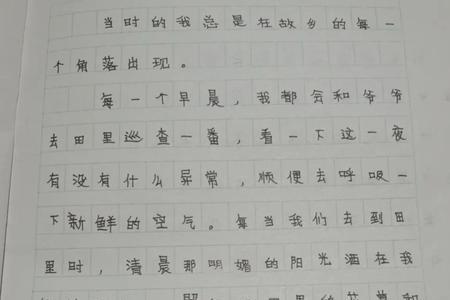 当时的我总是在故乡的每一
个角落出现。
每一个早晨，我都会和爷爷
去田里巡查一番，看一下这一夜
有没有什么异常，顺便去呼吸一
下新鲜的空气。每当我们去到田
里时，清晨那明媚的阳光洒在我